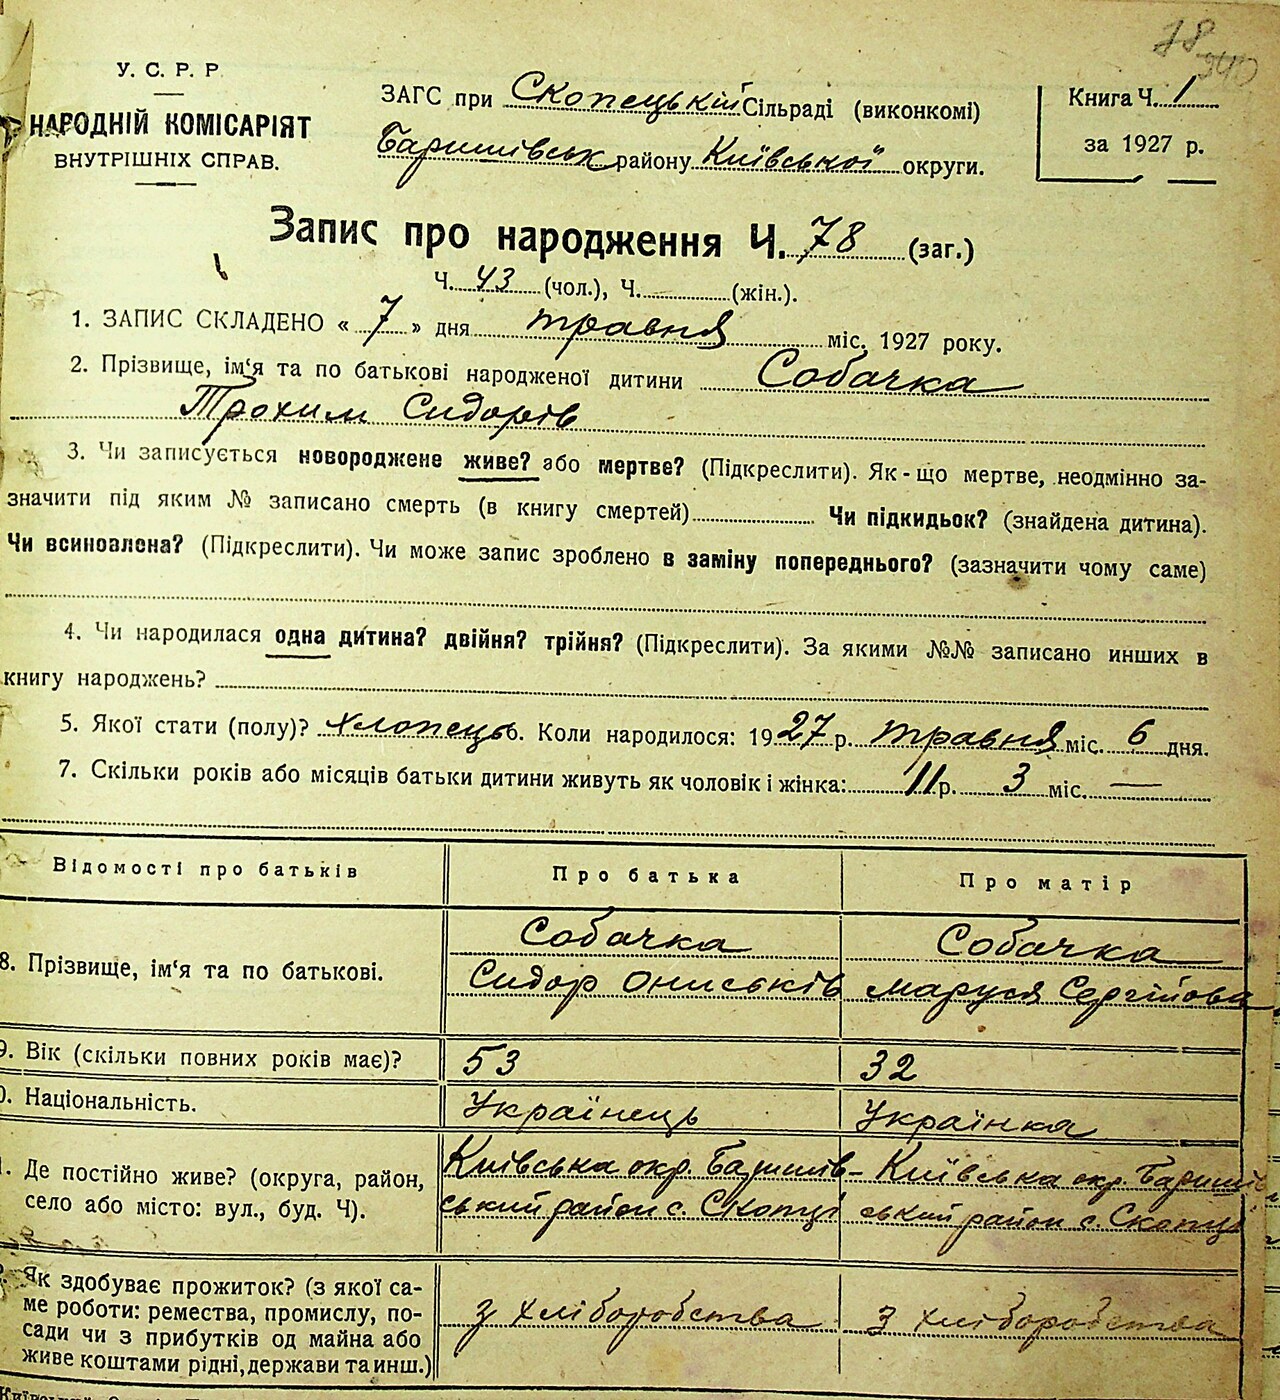 78
940
У. С. Р. Р
НАРОДНІЙ КОМІСАРІЯТ
ВНУТРІШНІХ СПРАВ.
ЗАГС при Скопецькій Сільраді (виконкомі)
Баришівськ району Київської округи.
Книга Ч. 1
за 1927 р.
Запис про народження Ч. 78 (заг.)
Ч. 43 (чол.), Ч. (жін.).
1. ЗАПИС СКЛАДЕНО « 7 » дня травня міс. 1927 року.
2. Прізвище, ім‘я та по батькові народженої дитини Собачка
Трохим Сидорів
3. Чи записується новороджене живе? або мертве? (Підкреслити). Як-що мертве, неодмінно за-
значити під яким № записано смерть (в книгу смертей) Чи підкидьок? (знайдена дитина).
Чи всиновлена? (Підкреслити). Чи може запис зроблено в заміну попереднього? (зазначити чому саме)
4. Чи народилася одна дитина? двійня? трійня? (Підкреслити). За якими №№ записано инших в
книгу народжень?
5. Якої стати (полу)? Хлопець. Коли народилося: 1927 р. травня міс. 6 дня.
7. Скільки років або місяців батьки дитини живуть як чоловік і жінка: 11 р. 3 міс. —
Відомості про батьків Про батька Про матір
8. Прізвище, ім‘я та по батькові. Собачка Собачка
Сидор Ониськів Маруся Сергійова
9. Вік (скільки повних років має)? 53 32
0. Національність. Українець Українка
1. Де постійно живе? (округа, район, Київська окр. Баришів- Київська окр. Баришів
село або місто: вул., буд. Ч). ський район с. Скопці ський район с. Скопці
Як здобуває прожиток? (з якої са-
ме роботи: ремества, промислу, по-
сади чи з прибутків од майна або з хліборобства з хліборобства
живе коштами рідні, держави та инш.)